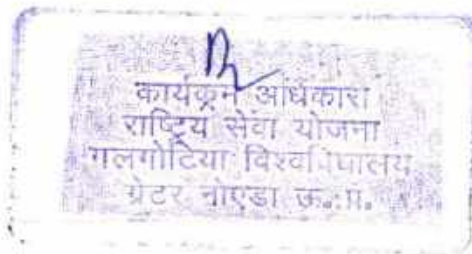 कार्यक्रम अधिकारी
राष्ट्रिय सेवा योजना
गलगोटिया विश्वविद्यालय
ग्रेटर नोएडा ऊ.प्र.